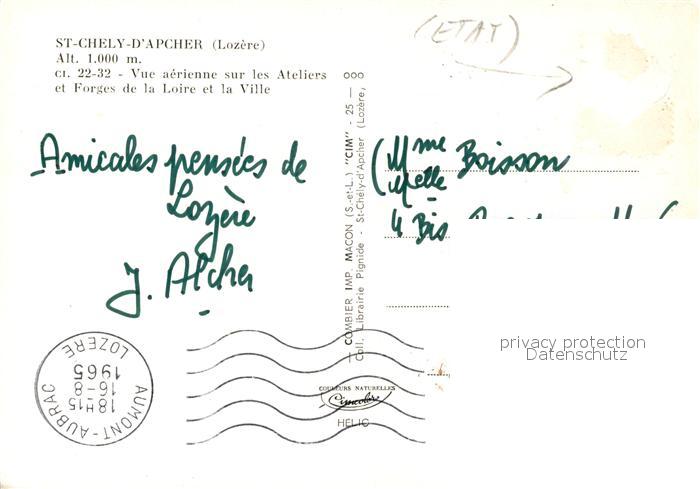 ST-CHELY-D'APCHER (Lozère)
Alt. 1.000 m.
CI. 22-32 - Vue aérienne sur les Ateliers
et Forges de la Loire et la Ville
(ETAT)
Amicales pensées de
Lozère
J. Alcher
COMBIER IMP. MACON (S.-et-L.) "CIM" - 25 - 000
Coll. Librairie Pignide - St-Chély-d'Apcher (Lozère)
(Mme Boisson
Melle
4 Bis
privacy protection
Datenschutz
COULEURS NATURELLES
Cimcolor
HELIO
AUMONT-AUBRAC
18H15
16-8
1965
LOZERE